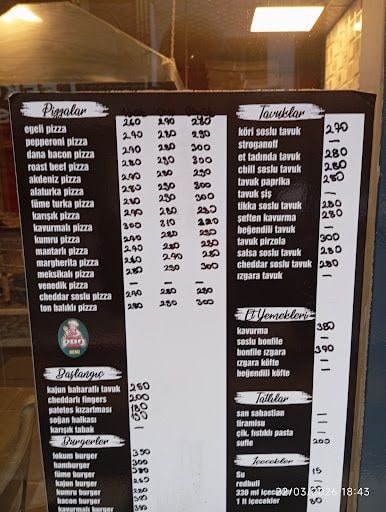 Pizzalar
egeli pizza 260 290 280
pepperoni pizza 240 280 290
dana bacon pizza 240 280 300
roast beef pizza 280 290 300
akdeniz pizza 240 280 290
alaturka pizza 280 290 300
füme turka pizza 280 290 300
karışık pizza 240 280 290
kavurmalı pizza 300 310 320
kumru pizza 240 280 290
mantarlı pizza
margherita pizza 240 280
meksikalı pizza 280 290 300
venedik pizza — — —
cheddar soslu pizza 240 280 290
ton balıklı pizza 280 290 300
MENU
Başlangıç
kajun baharatlı tavuk 250
cheddarlı fingers 200
patates kızarması 150
soğan halkası
karışık tabak —
Burgerler
lokum burger 350
hamburger 300
füme burger
kajun burger
kumru burger
bacon burger 300
kavurmalı burger
Tavuklar
köri soslu tavuk 270
stroganoff —
et tadında tavuk 280
chili soslu tavuk 280
tavuk paprika 280
tavuk şiş —
tikka soslu tavuk 280
şeften kavurma 280
beğendili tavuk —
tavuk pirzola 300
salsa soslu tavuk 280
cheddar soslu tavuk 280
ızgara tavuk —
Et Yemekleri
kavurma 380
soslu bonfile —
bonfile ızgara 390
ızgara köfte —
beğendili köfte —
Tatlılar
san sabastian
tiramisu
çik. fıstıklı pasta
sufle 200
İçecekler
Su 15
redbull
330 ml içecek
1 lt içecekler 80
22/03/2026 18:43